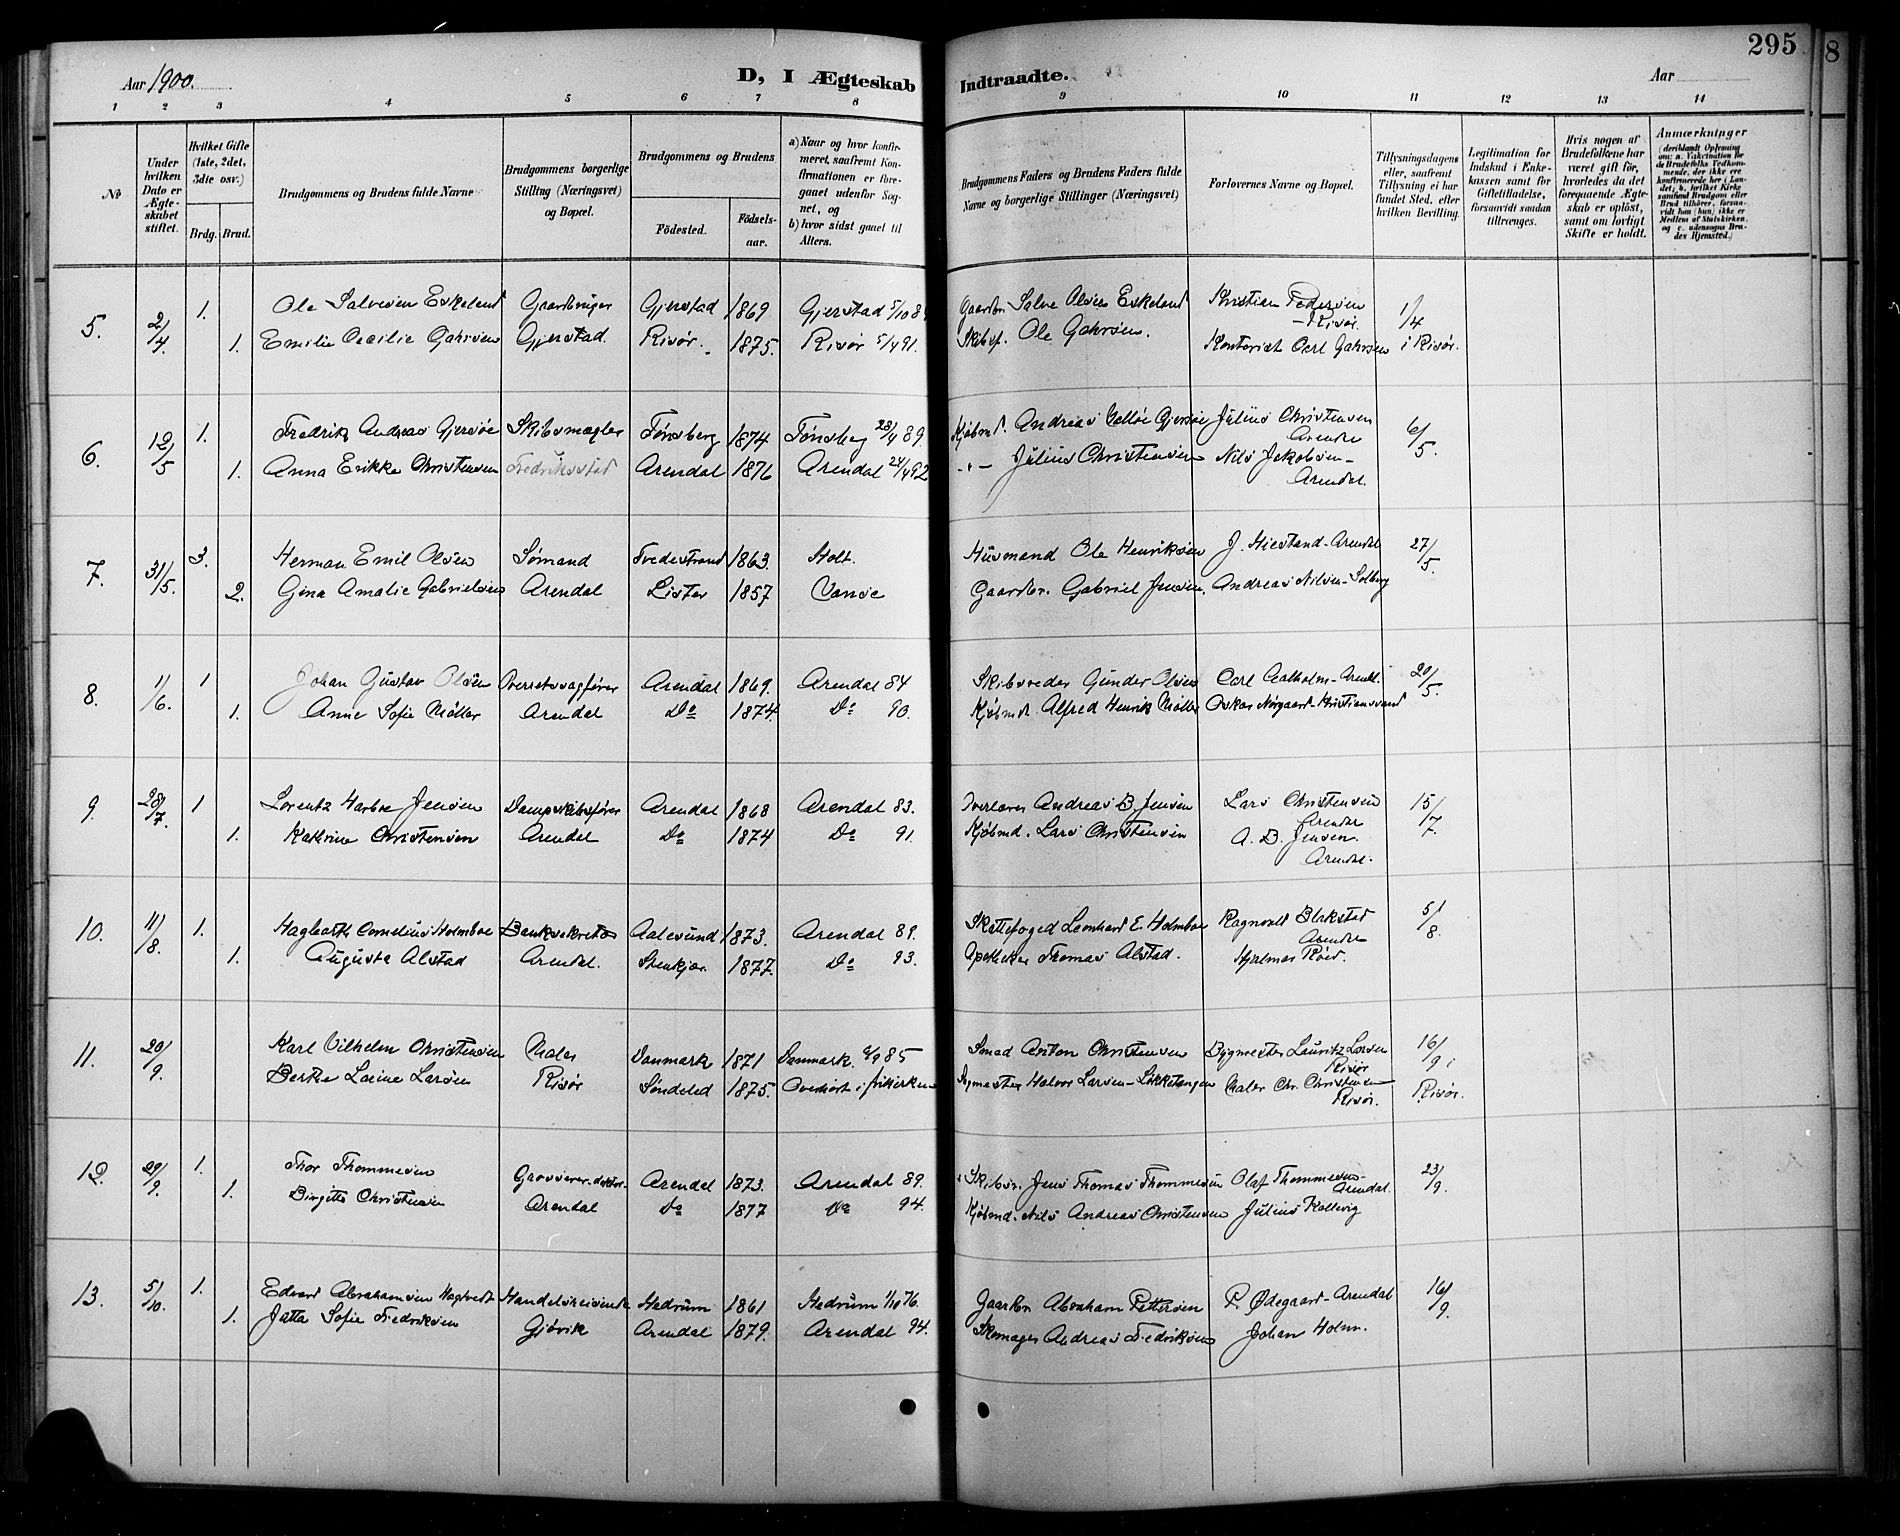 295
8
Aar 1900.
D, I Ægteskab Indtraadte.
Aar
1 2 3 4 5 6 7 8 9 10 11 12 13 14
No
Under hvilken Dato er Ægteskabet stiftet.
Hvilket Gifte (1ste, 2det, 3die osv.)
Brdg. Brud.
Brudgommens og Brudens fulde Navne
Brudgommens borgerlige Stilling (Næringsvei) og Bopæl.
Brudgommens og Brudens
Födested.
Födsels-aar.
a) Naar og hvor konfirmeret, saafremt Konfirmationen er foregaaet udenfor Sognet, og
b) hvor sidst gaaet til Alters.
Brudgommens Faders og Brudens Faders fulde Navne og borgerlige Stillinger (Næringsvei)
Forlovernes Navne og Bopæl.
Tillysningsdagens eller, saafremt Tillysning ei har fundet Sted, efter hvilken Bevilling.
Legitimation for Indskud i Enkekassen samt for Giftetilladelse, forsaavidt saadan tiltrænges.
Hvis nogen af Brudefolkene har været gift før, hvorledes da det foregaaende Ægteskab er oplöst, samt om lovligt Skifte er holdt.
Anmærkninger (deriblandt Oplysning om: a. Vakcination for de Brudefolks Vedkommende, der ikke ere konfirmerede her i Landet; b. hvilket Kirkesamfund Brudgom eller Brud tilhörer, forsaavidt han (hun) ikke er Medlem af Statskirken, og c. udensogns Brudes Hjemsted.)
5. 2/4 1. Ole Salvesen Eskeland Gaardbruger Gjerstad 1869 Gjerstad 5/10 8 Gaardbr. Salve Olsen Eskeland Kristian Pedersen - Risør. 1/4
1. Emilie Cecilie Gahrsen Gjerstad Risør. 1875. Risør 5/4 91. Skibsf. Ole Gahrsen. Kontorist Carl Gahrsen i Risør.
6. 12/5 1. Fredrik Andreas Gjersøe Skibsmægler Tønsberg 1874 Tønsberg 28/4 89. Kjøbmd. Andreas Gjersøe Julius Christensen Arendal 6/5.
1. Anna Erikke Christensen Fredriksstad Arendal 1876 Arendal 24/4 92 -"- Julius Christensen Nils Jakobsen - Arendal.
7. 31/5. 3. Herman Emil Olsen Sømand Tvedestrand 1863. Holt. Husmand Ole Henriksen J. Hiestand - Arendal 27/5.
2. Gina Amalie Gabrielsen Arendal Lister 1857 Vanse Gaardbr. Gabriel Jensen. Andreas Nilsen - Solberg
8. 1/6. 1 Johan Gustav Olsen Overretssagfører Arendal 1869. Arendal 84 Skibsreder Gunder Olsen Carl Aalholm - Arendl. 20/5.
1. Anne Sofie Møller Arendal Do 1874. Do 90. Kjøbmd. Alfred Henrik Møller Oskar Nørgaard - Kristianssand
9. 28/7. 1 Lorentz Harboe Jensen Dampskibsfører Arendal 1868 Arendal 83. Overlærer Andreas B. Jensen Lars Christensen Arendal 15/7.
1. Kathrine Christensen Arendal Do 1874 Do 91. Kjøbmd. Lars Christensen A. B. Jensen. Arendal.
10. 11/8. 1. Hagbarth Cornelius Holmboe Banksekretær Aalesund 1873. Arendal 89. Skattefoged Leonhard E. Holmboe Ragnvald Blakstad Arendal 5/8.
1. Augusta Alstad Arendal. Stenkjær. 1877. Do 93. Apotheker Thomas Alstad. Hjalmar Röed.
11. 20/9. Karl Vilhelm Christensen Maler Danmark 1871 Danmark 85 Smed Anton Christensen Bygmester Lauritz Larsen Risør 16/9 i
Berthe Lovine Larsen Risør Søndeled 1875. Overhört i frikirken Bygmester Halvor Larsen - Maler Chr. Christensen Risør. Risør.
12. 29/9. 1. Thor Thommesen Grosserer Arendal 1873. Arendal 89. Skibsr. Jens Thomas Thommesen Olaf Thommesen - Arendal. 23/9.
1. Birgitte Christensen Arendal Do 1877 Do 94. Kjøbmd. Nils Andreas Christensen Julius Kallevig
13. 5/10. 1. Edvard Abrahamsen Hagtvedt Handelsreisende Hedrum 1861 Hedrum 1/10 76. Gaardbr. Abraham Pettersen P. Ødegaard - Arendal 16/9.
1. Jutta Sofie Fredriksen Gjövik Arendal 1879. Arendal 94. Skomager Andreas Fredriksen Johan Holm.